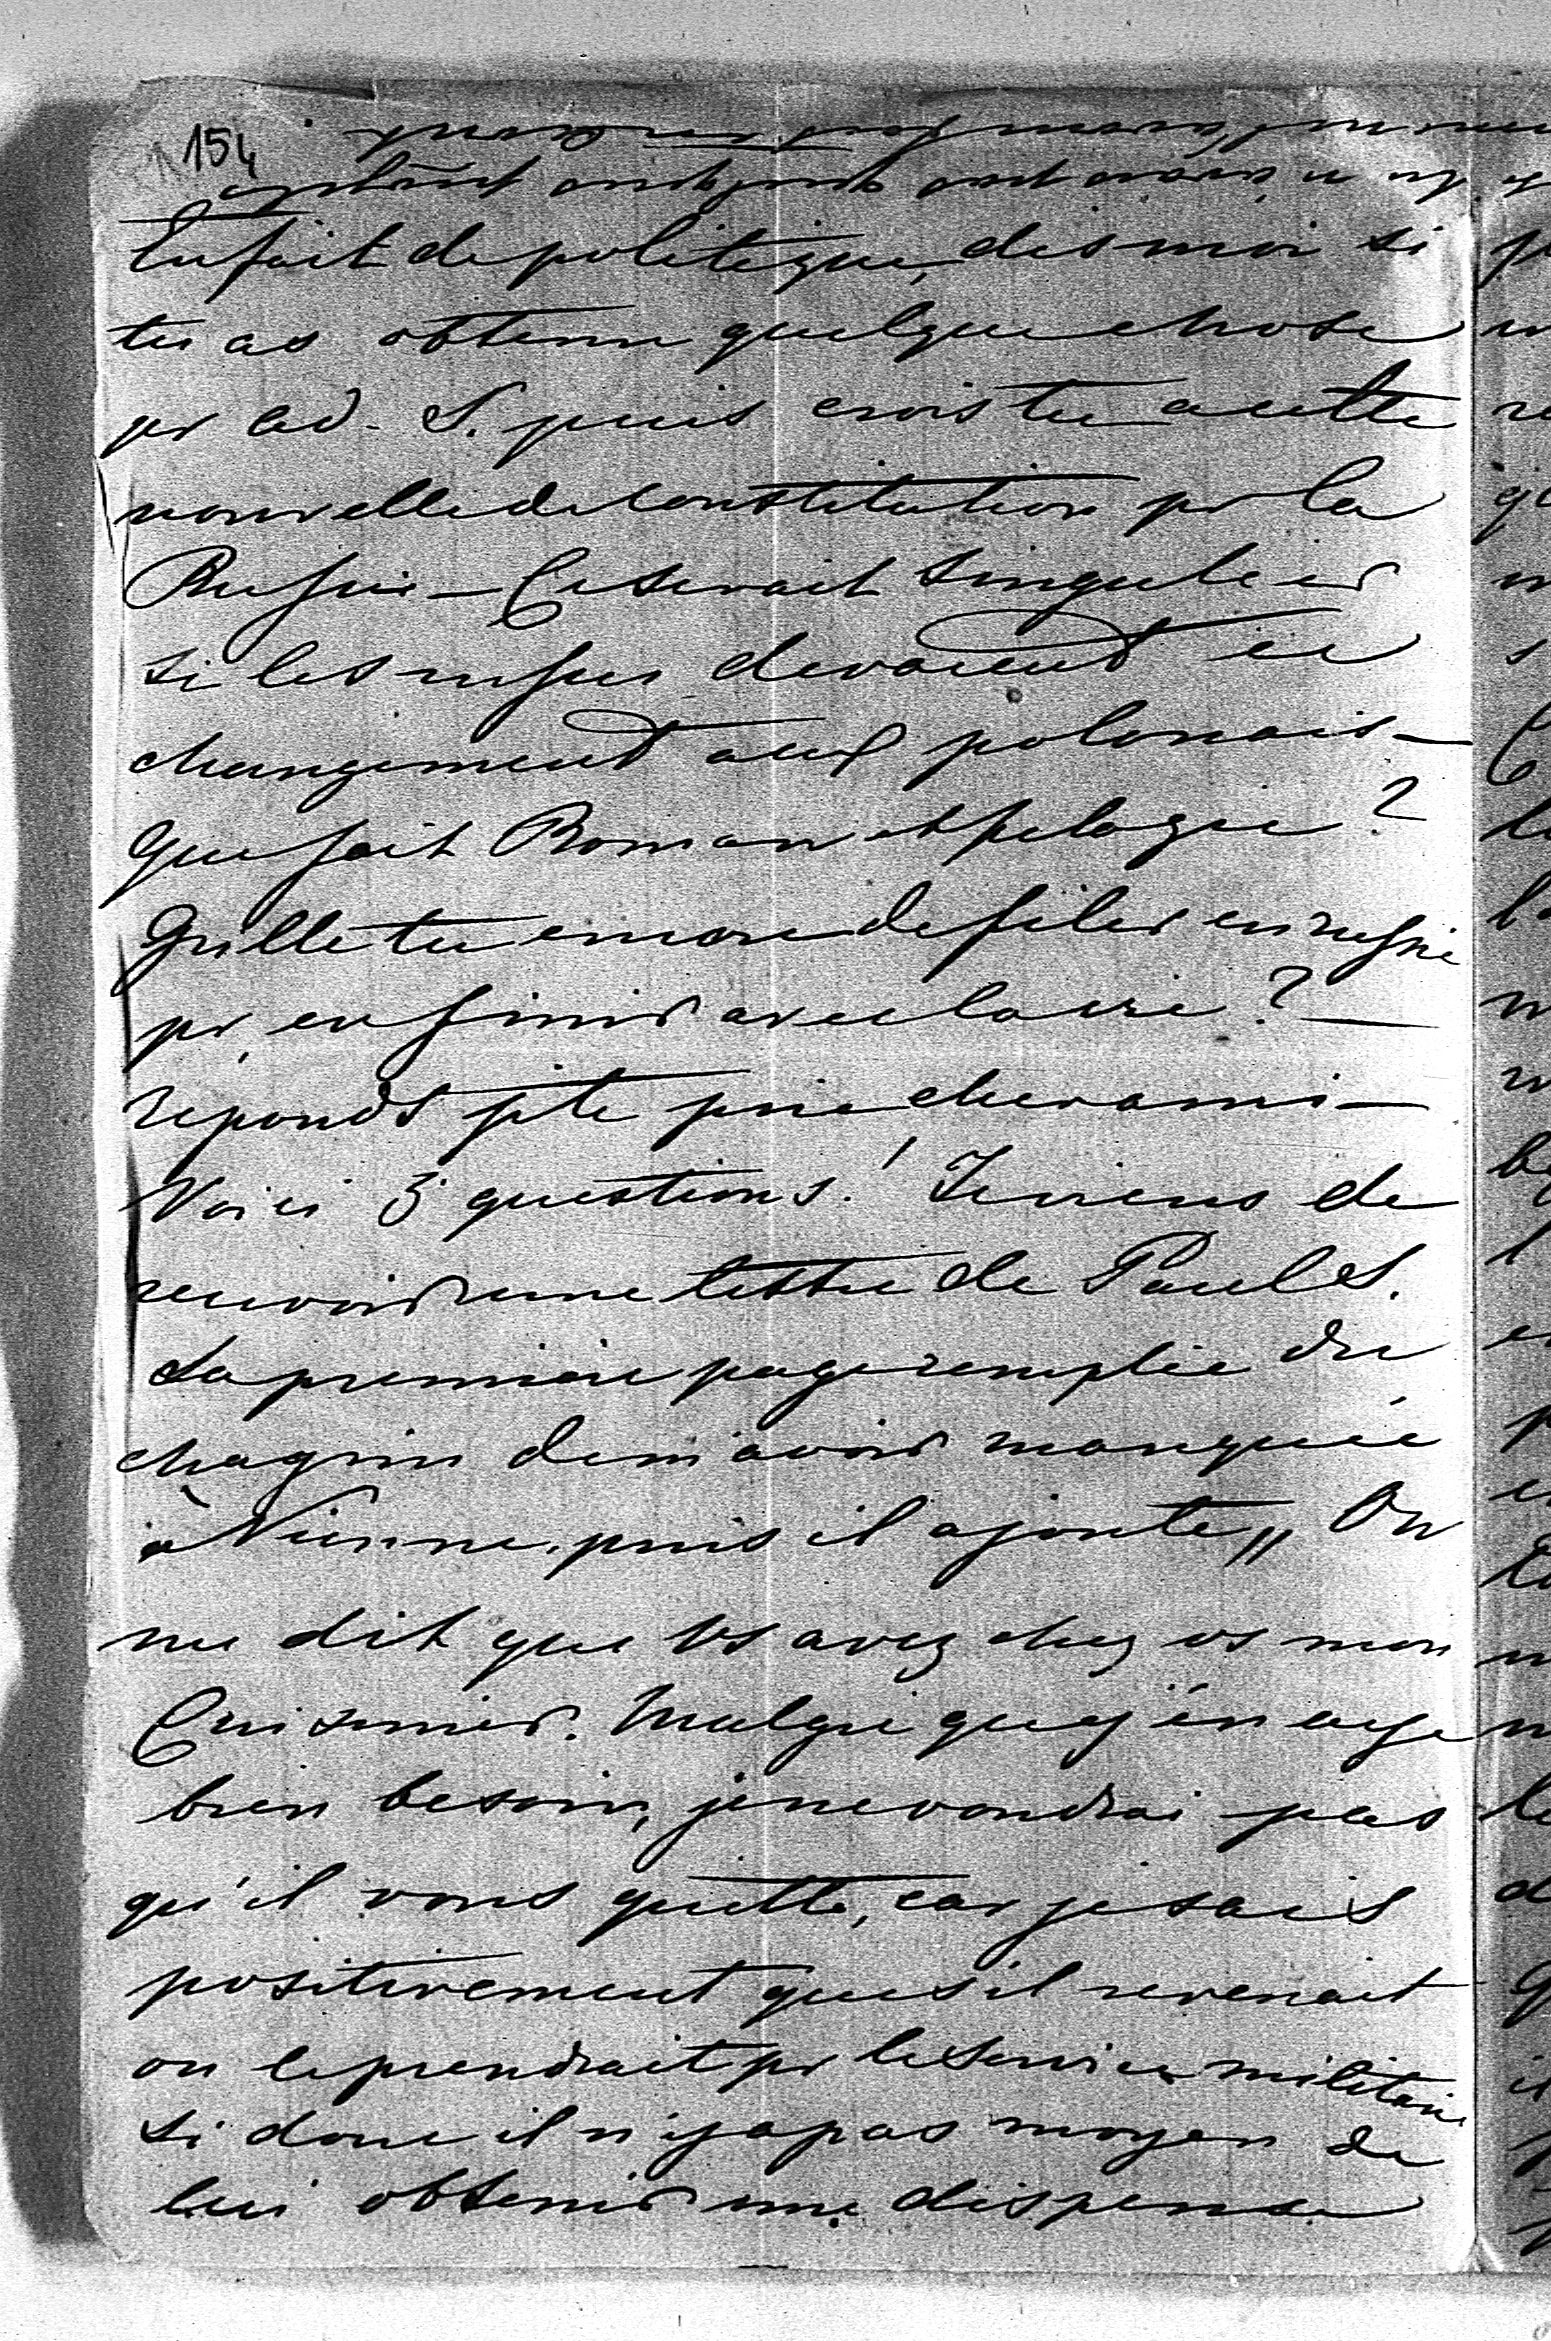 154
En fait de politique, dis moi si
tu as obtenu quelque chose
pr Ad. S. puis crois tu a cette
nouvelle de Constitution pr la
Russie — Ce serait singulier
si les russes devaient ce
changement aux polonais —
Que fait Roman et Pelagie ?
encore de filer en russie
pr en finir avec la vie ? —
reponds je te prie cher ami —
Voici 3 questions ! Je viens de
recevoir une lettre de Paul S.
La premiere page remplie du
chagrin de m'avoir manquée
à Vienne, puis il ajoute „ On
me dit que vs avez chez vs mon
Cuisinier. Malgré que j'en aye
bien besoin, je ne voudrai pas
qu'il vous quitte, car je sais
positivement que s'il revenait
on le prendrait pr le service militaire
si donc il n'y a pas moyen de
lui obtenir une dispense